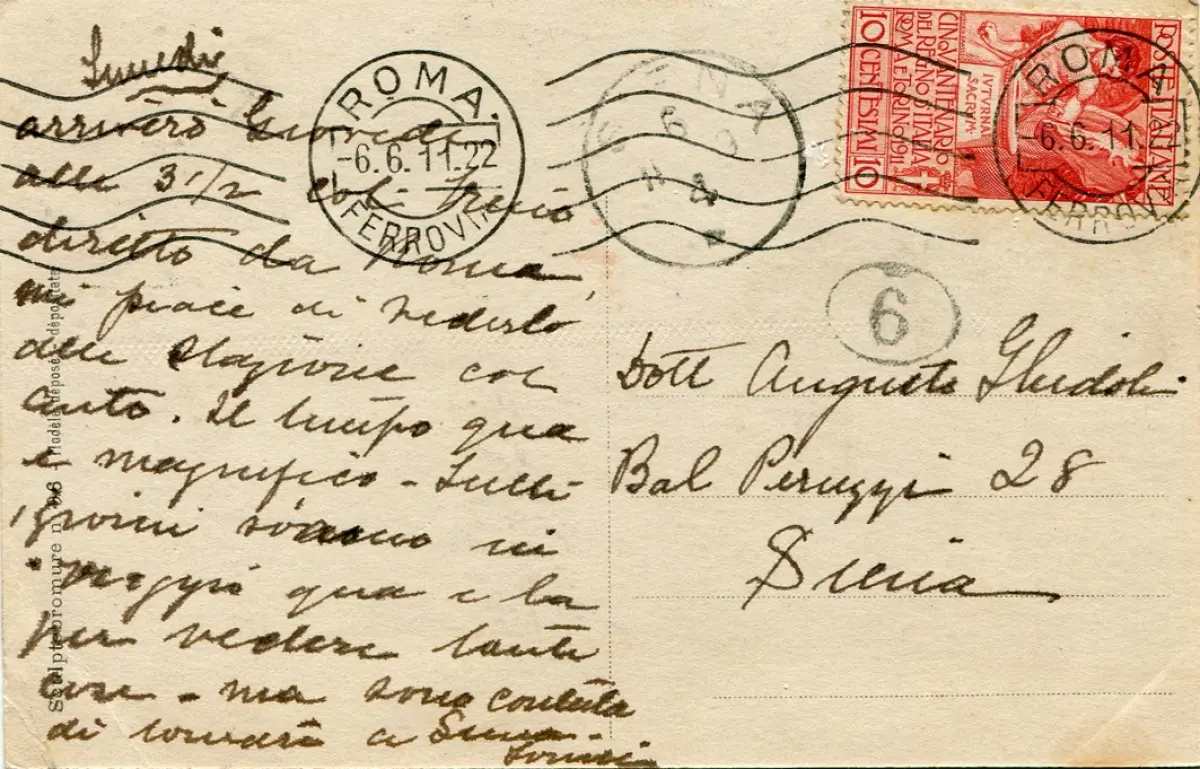 Lunedi
arrivero Giovedi
alle 3 1/2 col treno
diretto da Roma
mi piace di vederlo
alle Stazione col
auto. Il tempo qua
e magnifico - Tutti
i giorni sono in
viaggio qua e la
per vedere tante
cose - ma sono contenta
di tornare a Siena
Sculptobromure n. Modele déposé depostata
ROMA.
-6.6.11.22
FERROVIA
SIENA
6
POSTE ITALIANE
CINQVANTENARIO
DEL REGNO D'ITALIA
ROMA E TORINO 1911
10 CENTESIMI 10
IVTVRNA
SACRVM
ROMA
-6.6.11.
FERROV
6
Dott Augusto Ghidoli
Bal Peruzzi 28
Siena